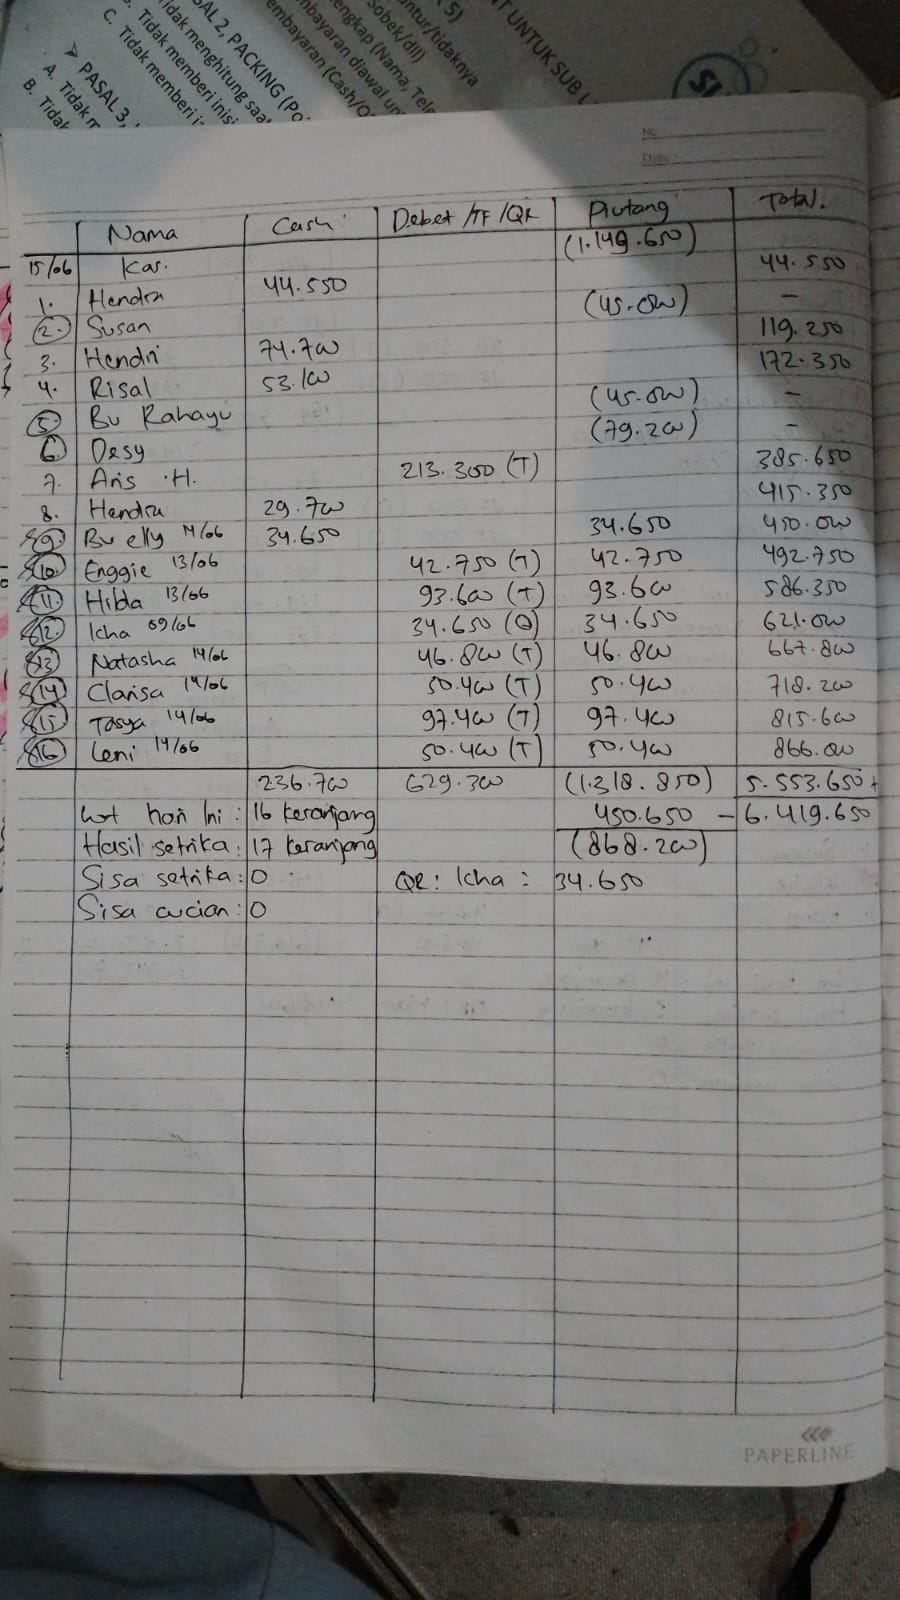 UNTUK SUB
5)
ntur/tidaknya
engkap (Nama, Tel
sobek/dll)
mbayaran diawal un
embayaran (Cash/
SAL 2, PACKING (Po
Tidak menghitung saa
Tidak memberi inis
C. Tidak memberi i
➤ PASAL 3,
A. Tidak m
B. Tidak
No
Date :
Nama Cash Debet /TF /QR Piutang Total.
15/06 Kas. (1.149.650)
1. Hendra 44.550 44.550
2. Susan (45.000) –
3. Hendri 74.700 119.250
4. Risal 53.100 172.350
5. Bu Rahayu (45.000) –
6. Desy (79.200) –
7. Aris .H. 213.300 (T) 385.650
8. Hendra 29.700 415.350
9. Bu elly 14/06 34.650 34.650 450.000
10. Enggie 13/06 42.750 (T) 42.750 492.750
11. Hilda 13/06 93.600 (T) 93.600 586.350
12. Icha 09/06 34.650 (Q) 34.650 621.000
13 Natasha 14/06 46.800 (T) 46.800 667.800
14 Clarisa 14/06 50.400 (T) 50.400 718.200
15 Tasya 14/06 97.400 (T) 97.400 815.600
16 Leni 14/06 50.400 (T) 50.400 866.000
236.700 629.300 (1.318.850) 5.553.650 +
hari Ini : 16 keranjang 450.650 – 6.419.650
Hasil setrika : 17 keranjang (868.200)
Sisa setrika : 0 QR : Icha : 34.650
Sisa cucian : 0
PAPERLINE